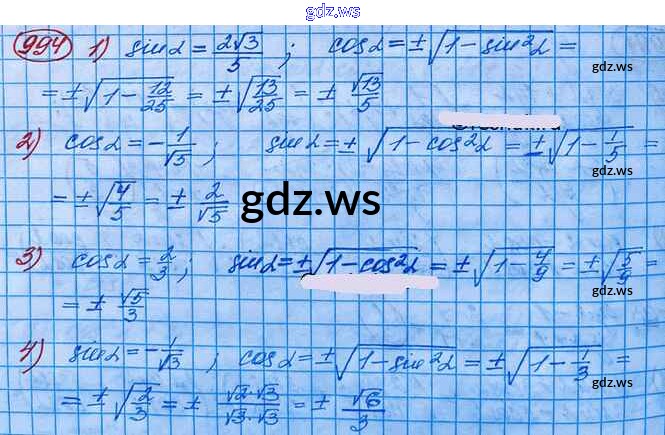 gdz.ws
994 1) sin α = 2√3/5 ; cos α = ±√(1 − sin²α) =
gdz.ws
= ±√(1 − 12/25) = ±√(13/25) = ± √13/5
2) cos α = −1/√5 ; sin α = ±√(1 − cos²α) = ±√(1 − 1/5) =
gdz.ws
= ±√(4/5) = ± 2/√5
gdz.ws
3) cos α = 2/3 ; sin α = ±√(1 − cos²α) = ±√(1 − 4/9) = ±√(5/9) =
gdz.ws
= ± √5/3
4) sin α = −1/√3 ; cos α = ±√(1 − sin²α) = ±√(1 − 1/3) =
gdz.ws
= ±√(2/3) = ± √2·√3/√3·√3 = ± √6/3
gdz.ws